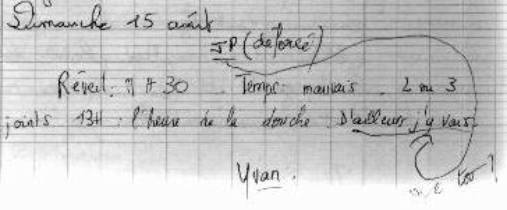 Dimanche 15 août
JP (deforcé)
Réveil: 11 H 30. Temps: mauvais. 2 ou 3
joints 13H: l'heure de la douche. D'ailleurs j'y vais.
Yvan.
too!